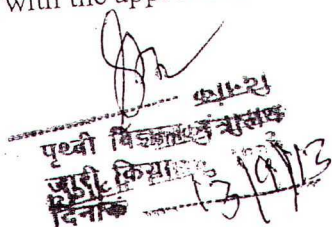 with the appr
पृथ्वी विज्ञान मंत्रालय
जारी किया
दिनांक 13/9/13